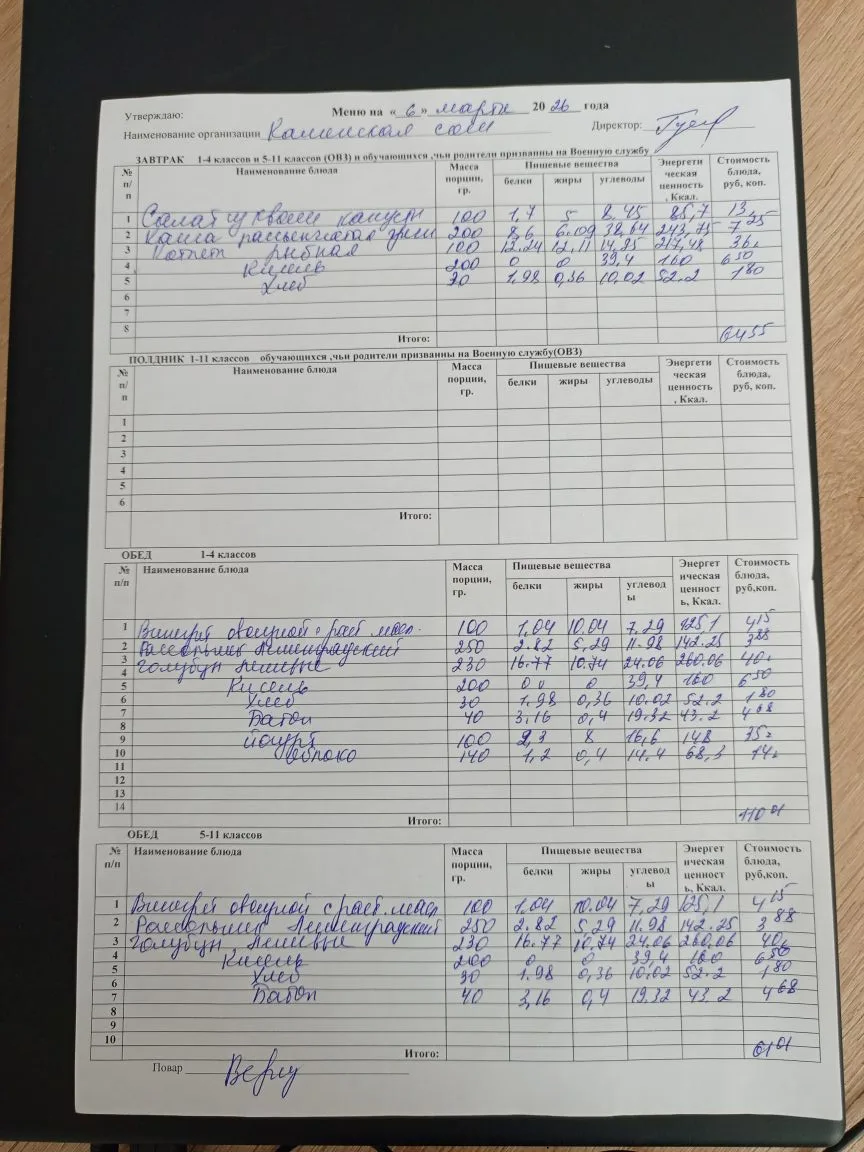 Утверждаю: Меню на « 6 » марта 20 26 года
Наименование организации Каменская сош Директор:
ЗАВТРАК 1-4 классов и 5-11 классов (ОВЗ) и обучающихся ,чьи родители призванны на Военную службу
№ п/п Наименование блюда Масса порции, гр. Пищевые вещества Энергети ческая ценность , Ккал. Стоимость блюда, руб, коп.
белки жиры углеводы
1 Салат из квашен капусты 100 1,7 5 8,45 85,7 13,
2 Каша рассыпчатая греч 200 8,6 6.109 38,64 243,75 7 25
3 Котлет рыбная 100 12.24 12,11 14,95 217,48 36
4 Кисель 200 0 0 39,4 160 6 50
5 Хлеб 30 1,98 0,36 10,02 52.2 1 80
6
7
8
Итого: 64 55
ПОЛДНИК 1-11 классов обучающихся ,чьи родители призванны на Военную службу(ОВЗ)
№ п/п Наименование блюда Масса порции, гр. Пищевые вещества Энергети ческая ценность , Ккал. Стоимость блюда, руб, коп.
белки жиры углеводы
1
2
3
4
5
6
Итого:
ОБЕД 1-4 классов
№ п/п Наименование блюда Масса порции, гр. Пищевые вещества Энергет ическая ценност ь, Ккал. Стоимость блюда, руб,коп.
белки жиры углевод ы
1 Винегрет овощной с раст. масл. 100 1,04 10.04 7,29 125,1 4 15
2 Рассольник Ленинградский 250 2.82 5,29 11.98 142.25 3 88
3 Голубцы ленивые 230 16.77 10.74 24.06 260.06 40
4
5 Кисель 200 0 0 39,4 160 6 50
6 Хлеб 30 1.98 0,36 10.02 52.2 1 80
7 Батон 40 3,16 0,4 19.32 43.2 4 68
8
9 йогурт 100 2,3 8 16,6 148 35
10 яблоко 140 1,2 0,4 14.4 68,3 14
11
12
13
14
Итого: 110 01
ОБЕД 5-11 классов
№ п/п Наименование блюда Масса порции, гр. Пищевые вещества Энергет ическая ценност ь, Ккал. Стоимость блюда, руб,коп.
белки жиры углевод ы
1 Винегрет овощной с раст. масл 100 1,04 10.04 7,29 125,1 4 15
2 Рассольник Ленинградский 250 2.82 5,29 11.98 142.25 3 88
3 Голубцы ленивые 230 16.77 10,74 24.06 260.06 40
4 Кисель 200 0 0 39,4 160 6 50
5 Хлеб 30 1.98 0,36 10,02 52.2 1 80
6
7 Батон 40 3,16 0,4 19.32 43.2 4 68
8
9
10
Итого: 61 01
Повар